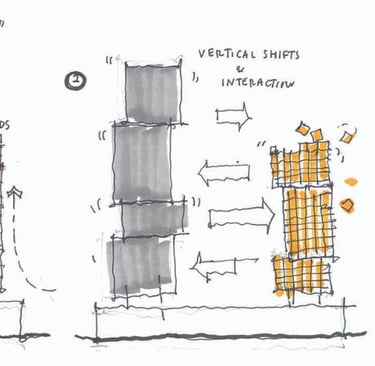 DS
2
VERTICAL SHIFTS
&
INTERACTION